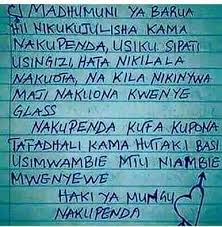 MADHUMUNI YA BARUA
HII NIKUKUJULISHA KAMA
NAKUPENDA, USIKU SIPATI
USINGIZI, HATA NIKILALA
NAKUOTA, NA KILA NIKINYWA
MAJI NAKUONA KWENYE
GLASS
NAKUPENDA KUFA KUPONA
TAFADHALI KAMA HUTAKI BASI
USIMWAMBIE MTU NIAMBIE
MWENYEWE
HAKI YA MUNGU
NAKUPENDA